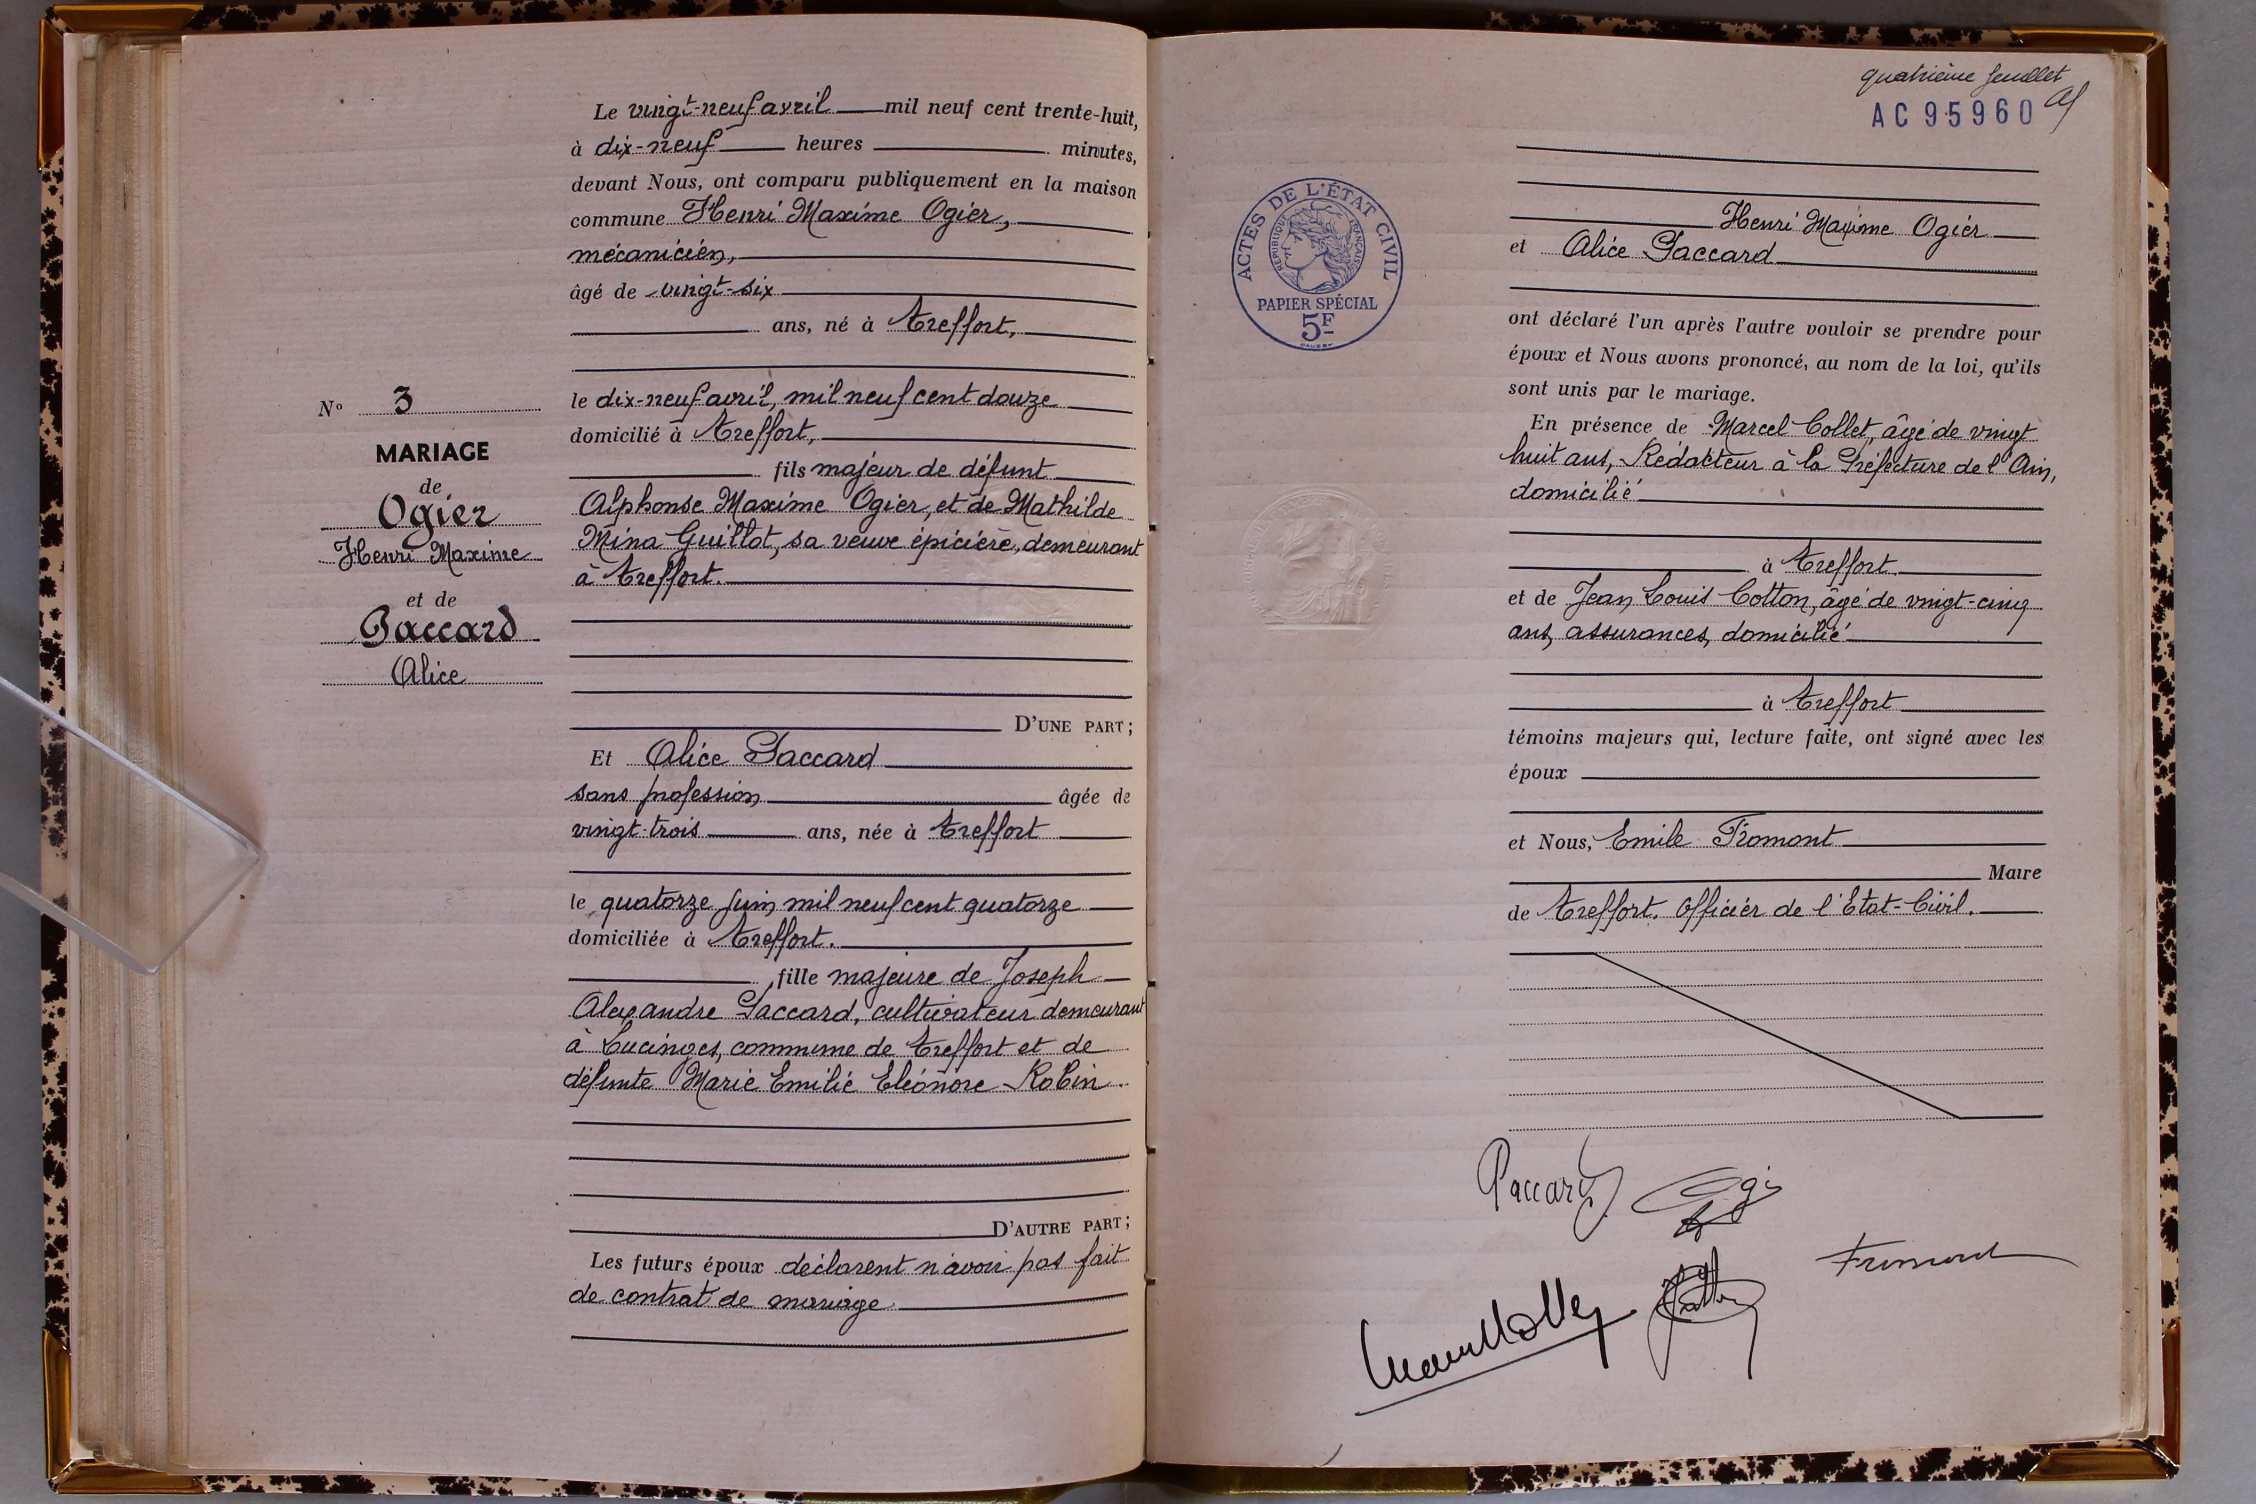 Le vingt-neuf avril mil neuf cent trente-huit,
à dix-neuf heures minutes,
devant Nous, ont comparu publiquement en la maison
commune Henri Maxime Ogier,
mécanicien,
âgé de vingt-six
ans, né à Treffort,
le dix-neuf avril, mil neuf cent douze
domicilié à Treffort,
fils majeur de défunt
Alphonse Maxime Ogier, et de Mathilde
Mina Guillot, sa veuve épicière, demeurant
à Treffort.
D'UNE PART;
Et Alice Paccard
sans profession âgée de
vingt-trois ans, née à Treffort
le quatorze juin mil neuf cent quatorze
domiciliée à Treffort.
fille majeure de Joseph
Alexandre Paccard, cultivateur demeurant
à Lucinges, commune de Treffort et de
défunte Marie Emilie Eléonore Robin.
D'AUTRE PART;
Les futurs époux déclarent n'avoir pas fait
de contrat de mariage.
No 3
MARIAGE
de
Ogier
Henri Maxime
et de
Paccard
Alice
quatrième feuillet
AC 95960
ACTES DE L'ÉTAT CIVIL
RÉPUBLIQUE FRANÇAISE
PAPIER SPÉCIAL
5F
Henri Maxime Ogier
et Alice Paccard
ont déclaré l'un après l'autre vouloir se prendre pour
époux et Nous avons prononcé, au nom de la loi, qu'ils
sont unis par le mariage.
En présence de Marcel Collet, âgé de vingt
huit ans, Rédacteur à la Préfecture de l'Ain,
domicilié
à Treffort.
et de Jean Louis Cotton, âgé de vingt-cinq
ans, assurances, domicilié
à Treffort
témoins majeurs qui, lecture faite, ont signé avec les
époux
et Nous, Emile Fromont
Maire
de Treffort. Officier de l'Etat-Civil.
Paccard
Fromont